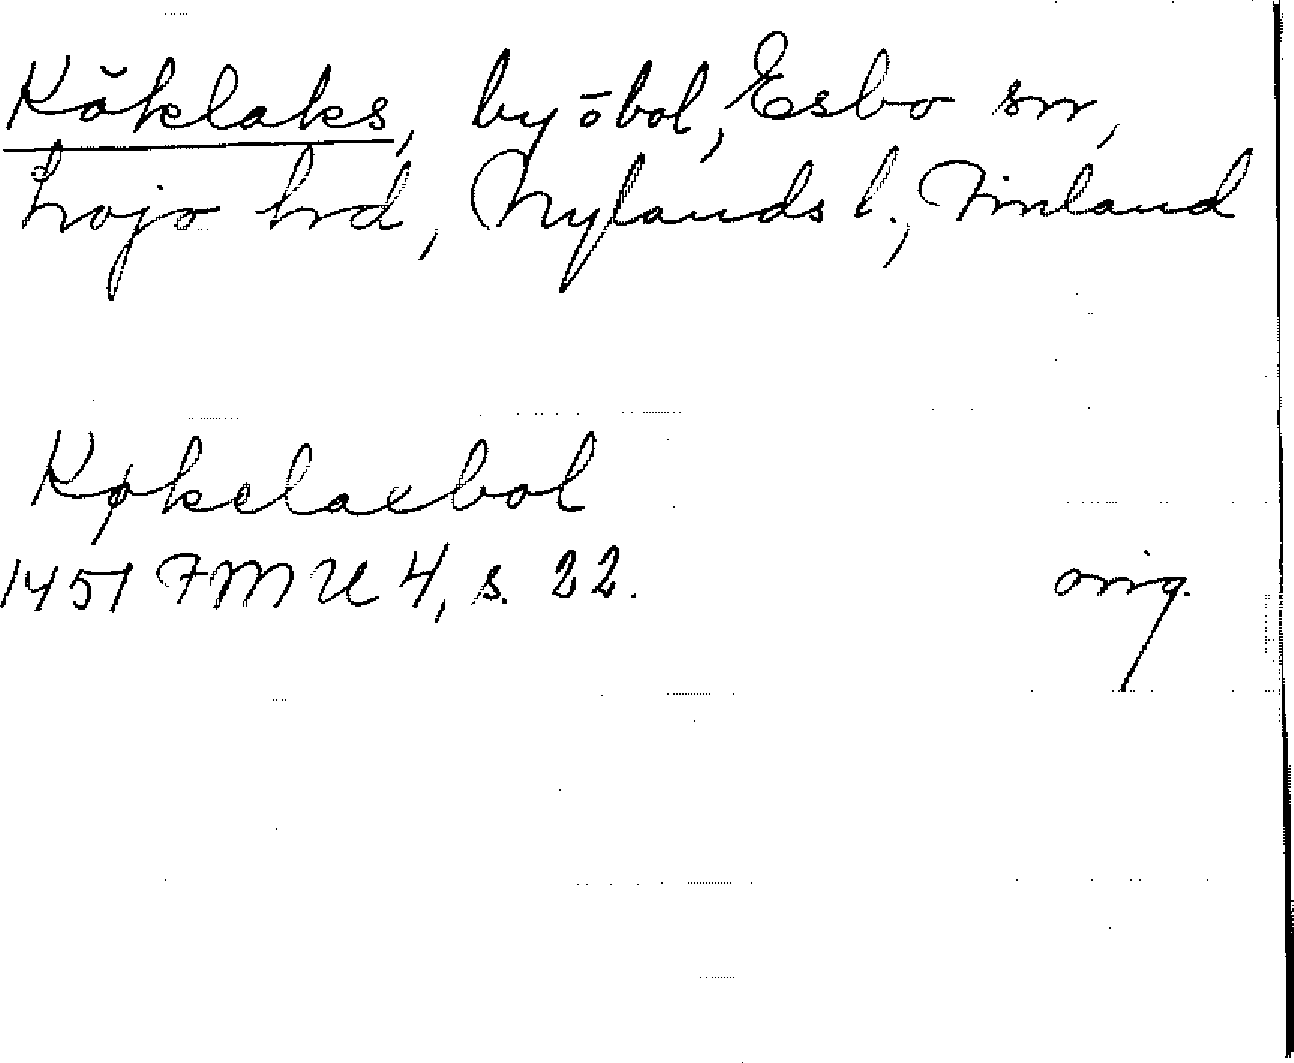 Köklaks, by o bol, Esbo sn,
Lojo hrd, Nylands l., Finland
Køkelaxbol
1451 FMU 4, s. 22. orig.